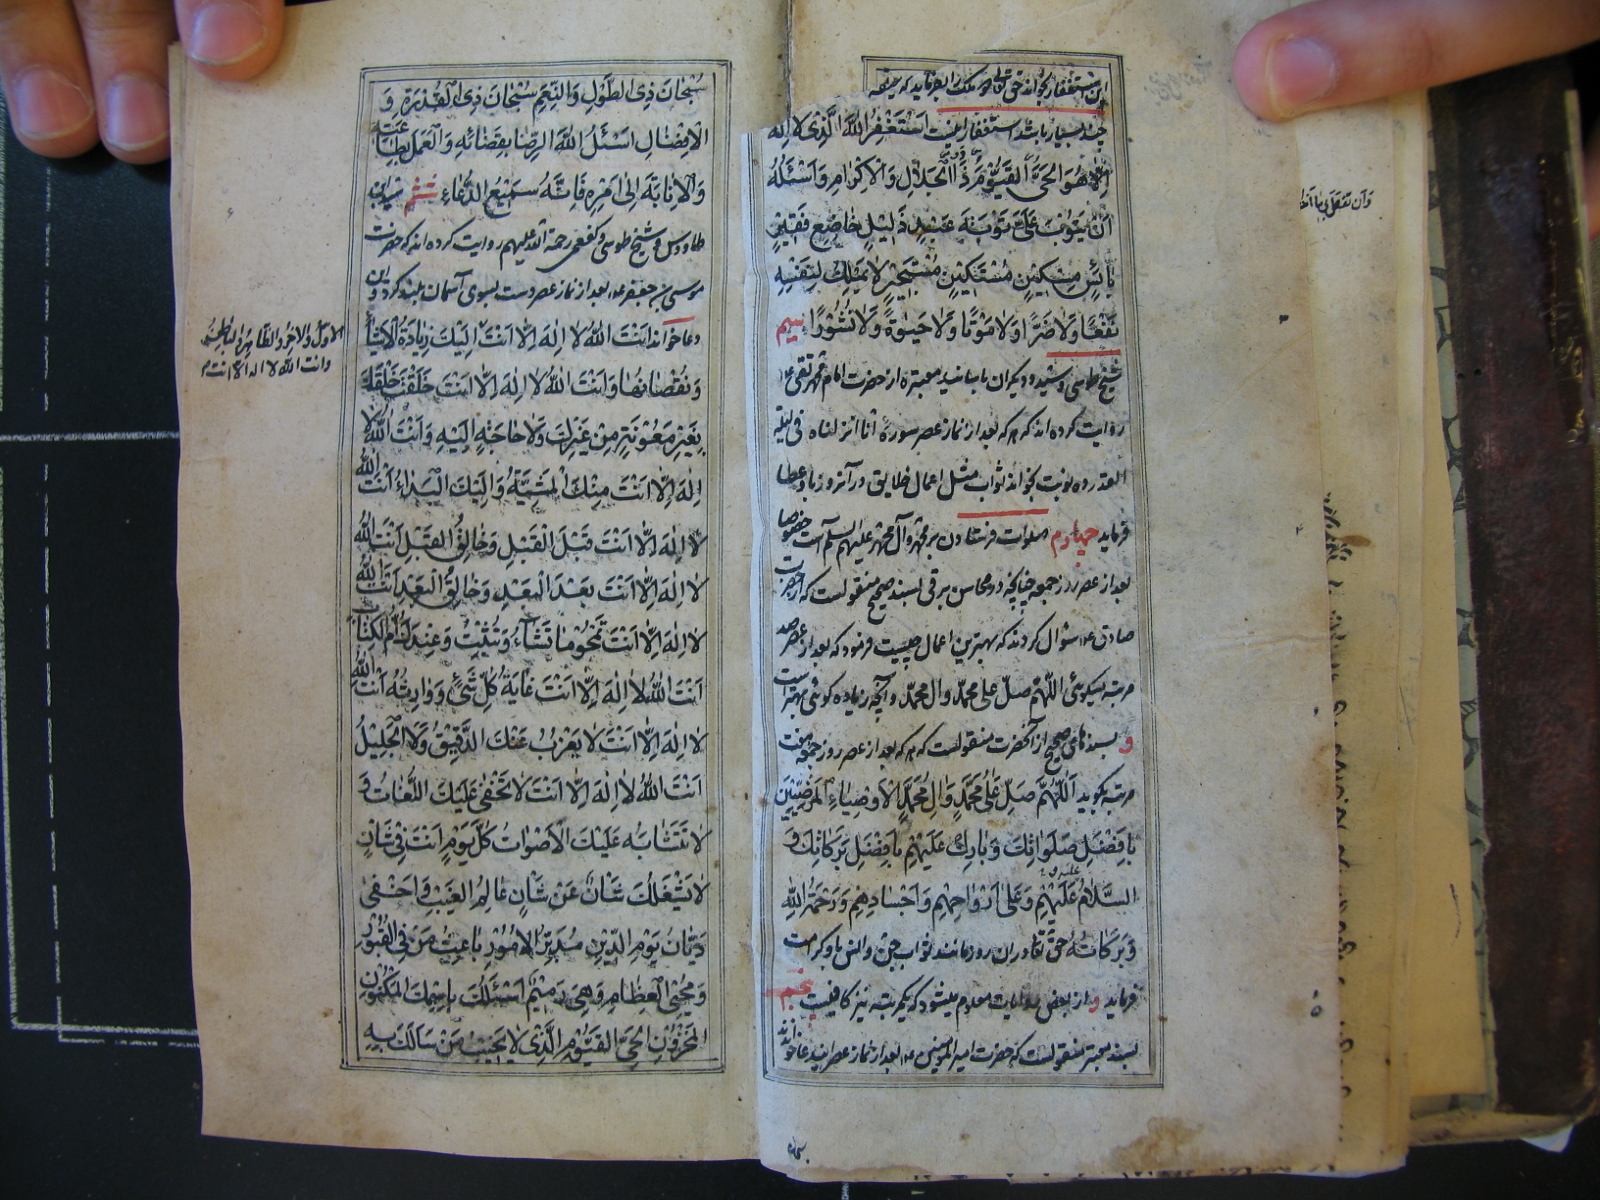 این استغفار بخواند حق تعالی دو ملک را امر فرماید که صحیفه
چند بسیار باشد استغفار اینست اَسْتَغْفِرُ اللّٰهَ الَّذی لا اِلٰهَ
اِلّا هُوَ الحَیُّ القَیُّومُ ذُا الجَلالِ وَالْاِکْرامِ وَاَسْئَلُهُ
اَنْ یَتُوبَ عَلَیَّ تَوْبَةَ عَبْدٍ ذَلیلٍ خاضِعٍ فَقیرٍ
بائِسٍ مِسْکینٍ مُسْتَکینٍ مُسْتَجیرٍ لا یَمْلِکُ لِنَفْسِهِ
نَفْعًا وَلا ضَرًّا وَلا مَوْتًا وَلا حَیٰوةً وَلا نُشُورًا سیم
شیخ طوسی و شهید و دیگران باسانید معتبره از حضرت امام محمد تقی ع
روایت کرده اند که هر که بعد از نماز عصر سورهٔ انا انزلناه فی لیلة
القدر ده نوبت بخواند ثواب مثل اعمال خلایق در آنروز باو عطا
فرماید چهارم صلوات فرستادن بر محمد و آل محمد علیهم السلم است خصوصا
بعد از عصر روز جمعه چنانچه در محاسن برقی بسند صحیح منقولست که از حضرت
صادق ع سؤال کردند که بهترین اعمال چیست فرمود که بعد از عصر صد
مرتبه بگوئی اللّهُمَّ صَلِّ علی محمّد وال محمّد و آنچه زیاده گوئی بهتر است
و بسندهای صحیح از آنحضرت منقولست که هر که بعد از عصر روز جمعه هفت
مرتبه بگوید اَللّهُمَّ صَلِّ عَلی مُحَمَّدٍ وَالِ مُحَمَّدٍ الْاَوْصِیاءِ المَرْضِیّینَ
بِاَفْضَلِ صَلَواتِکَ وَبارِکْ عَلَیْهِمْ بِاَفْضَلِ بَرَکاتِکَ وَ
السَّلامُ عَلَیْهِمْ وَعَلی اَرْواحِهِمْ وَاَجْسادِهِمْ وَرَحْمَةُ اللّهِ
وَبَرَکاتُهُ حق تعالی در ان روز مانند ثواب جن و انس باو کرامت
فرماید و از بعض روایات معلوم میشود که یکمرتبه نیز کافیست پنجم
بسند معتبر منقولست که حضرت امیر المؤمنین ع بعد از نماز عصر ایندعا میخواندند
سبحان
سُبْحانَ ذِی الطَّوْلِ وَالنِّعَمِ سُبْحانَ ذِی القُدْرَةِ وَ
الاِفْضالِ اَسْئَلُ اللّهَ الرِّضا بِقَضائِهِ وَالْعَمَلَ بِطاعَتِهِ
وَالاِنابَةَ اِلی اَمْرِهِ فَاِنَّهُ سَمیعُ الدُّعاءِ ششم سید ابن
طاووس و شیخ طوسی و کفعمی رحمة الله علیهم روایت کرده اند که حضرت
موسی بن جعفر ع بعد از نماز عصر دست بسوی آسمان بلند کرد و این
دعا خواند اَنْتَ اللّهُ لا اِلٰهَ اِلّا اَنْتَ اِلَیْکَ زِیادَةُ الاَشْیاءِ
وَنُقْصانُها وَاَنْتَ اللّهُ لا اِلٰهَ اِلّا اَنْتَ خَلَقْتَ خَلْقَکَ
بِغَیْرِ مَعُونَةٍ مِنْ غَیْرِکَ وَلا حاجَةٍ اِلَیْهِ وَاَنْتَ اللّهُ لا
اِلٰهَ اِلّا اَنْتَ مِنْکَ المَشِیَّةُ وَاِلَیْکَ البَداءُ اَنْتَ اللّهُ
لا اِلٰهَ اِلّا اَنْتَ قَبْلَ القَبْلِ وَخالِقُ القَبْلِ اَنْتَ اللّهُ
لا اِلٰهَ اِلّا اَنْتَ بَعْدَ البَعْدِ وَخالِقُ البَعْدِ اَنْتَ اللّهُ
لا اِلٰهَ اِلّا اَنْتَ تَمْحُو ما تَشاءُ وَتُثْبِتُ وَعِنْدَکَ اُمُّ الکِتابِ
اَنْتَ اللّهُ لا اِلٰهَ اِلّا اَنْتَ غایَةُ کُلِّ شَیْءٍ وَوارِثُهُ اَنْتَ اللّهُ
لا اِلٰهَ اِلّا اَنْتَ لا یَعْزُبُ عَنْکَ الدَّقیقُ وَلا الجَلیلُ
اَنْتَ اللّهُ لا اِلٰهَ اِلّا اَنْتَ لا تَخْفی عَلَیْکَ اللُّغاتُ وَ
لا تَتَشابَهُ عَلَیْکَ الاَصْواتُ کُلَّ یَوْمٍ اَنْتَ فی شَانٍ
لا یَشْغَلُکَ شَانٌ عَنْ شَانٍ عالِمُ الغَیْبِ وَاَخْفی
دَیّانُ یَوْمِ الدّینِ مُدَبِّرُ الاُمُورِ باعِثُ مَنْ فِی القُبُورِ
وَمُحْیِی العِظامِ وَهِیَ رَمیمٌ اَسْئَلُکَ بِاسْمِکَ المَکْنُونِ
المَخْزُونِ الحَیِّ القَیُّومِ الَّذی لا یَخیبُ مَنْ سَالَکَ بِهِ
الاوّل والاخر والظّاهر والباطن
وانت الله لا اله الا انت